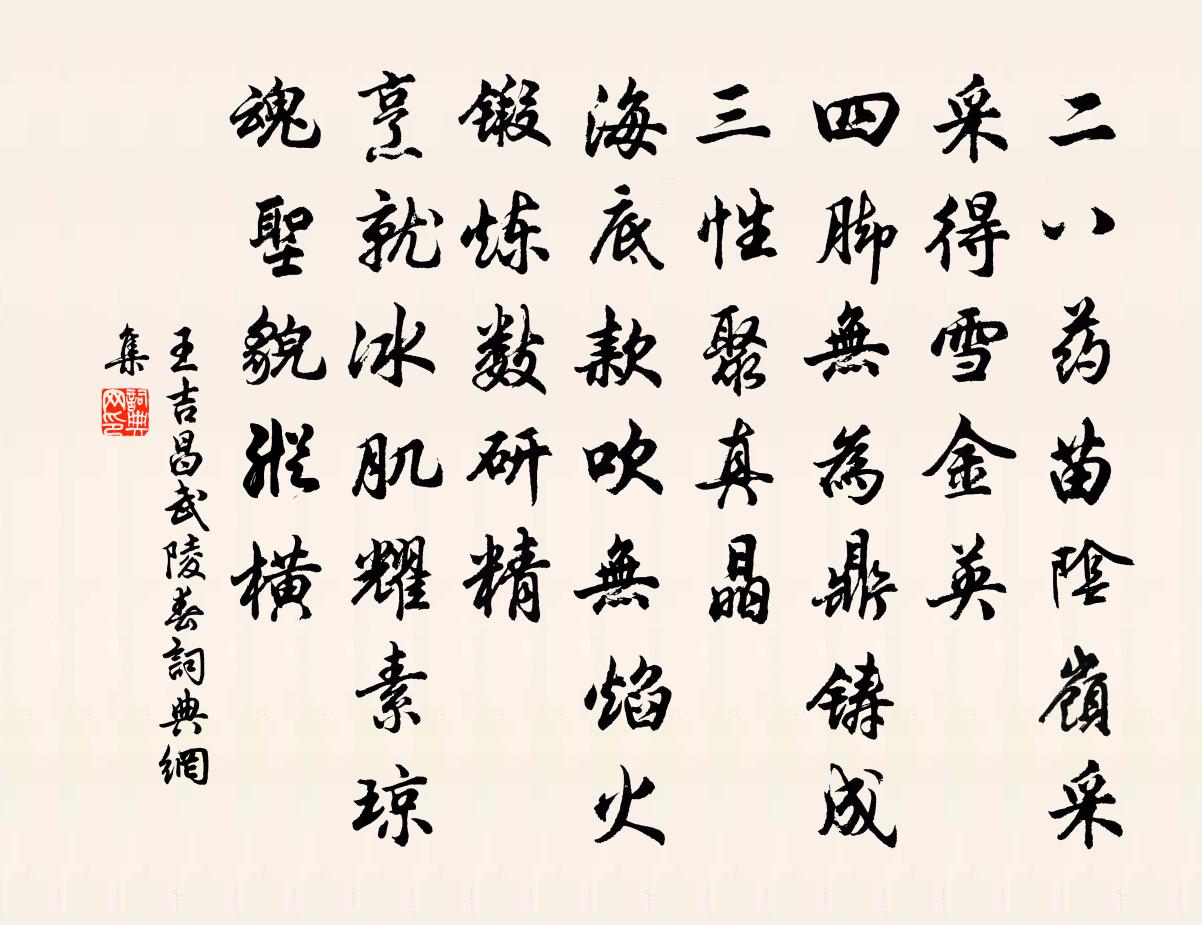 二八药苗陰嶺采
采得雪金英
四脚無為鼎鋳成
三性聚真晶
海底款吹無焰火
鍛炼数研精
烹就冰肌耀素琼
魂聖貌縱橫
王吉昌武陵春詞典網
集
詞典网印